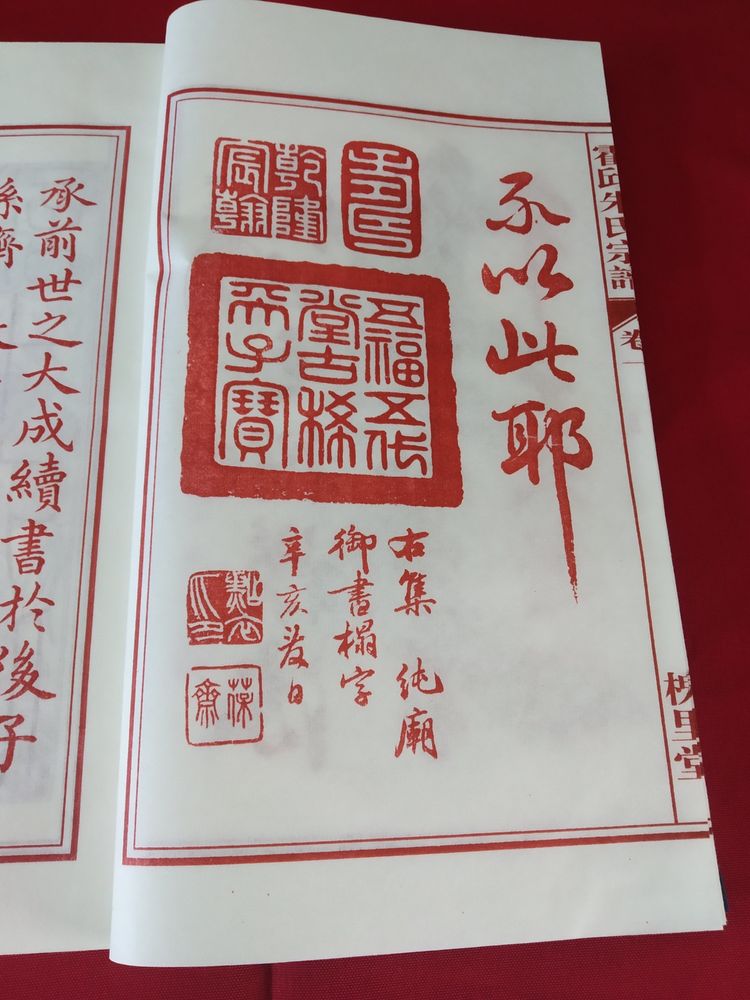 霍邱朱氏宗譜
卷一
里堂
不以此耶
乾隆宸翰
五福五代
堂古稀
天子寶
右集 純廟
御書榻字
辛亥春日
葆齋
承前世之大成續書於後子
孫齊